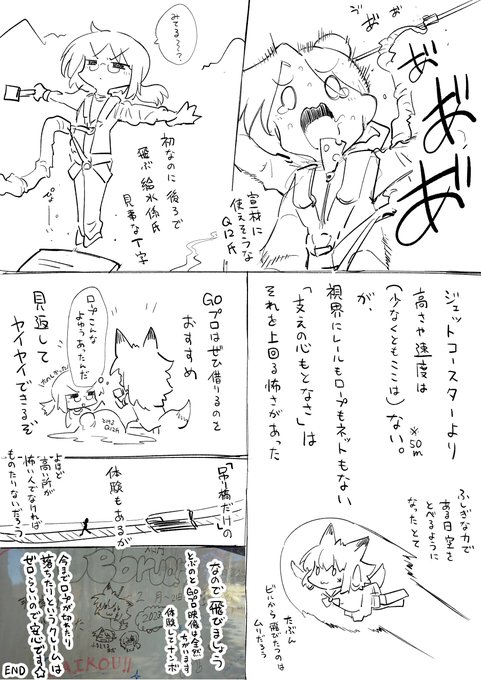 あ゛
あ゛
あ゛
あ゛
あ゛
宣材に
使えそうな
Q12氏
みてる〜?
初なのに後ろで
飛ぶ給水係氏
見事なT字
ジェットコースターより
高さや速度は ※50m
(少なくともここは)ない。
が、
視界にレールもロープもネットもない
「支えの心もとなさ」は
それを上回る怖さがあった
ふしぎな力で
ある日空を
とべるように
なったとて
たぶん
ビルから飛びたつのは
ムリだろう
GOプロはぜひ借りるのと
おすすめ
ロープこんな
よゆうあったんだ
見返して
ヤイヤイできるぞ
「吊り橋だけ」の
体験もあるが
よほど
高い所が
怖い人でなければ
ものたりないだろう
なので飛びましょう
とぶのとGOプロ映像は全然
ちがいます
体験してナンボ
2023
今までロープが切れたり
落ちたりというクレームは
ゼロらしいので安心です☆
END